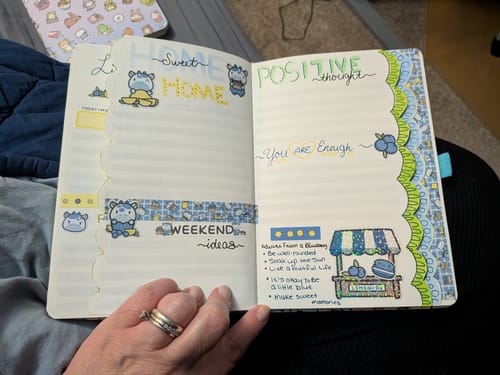 HOME
Sweet
HOME
TODAY I'M
WEEKEND
ideas
POSITIVE
thought
You ARE Enough
Advice From a Blueberry
• Be well-rounded
• Soak up the Sun
• Live a fruitful Life
• It's okay to be
a little blue
• make sweet
memories
LEMONADE